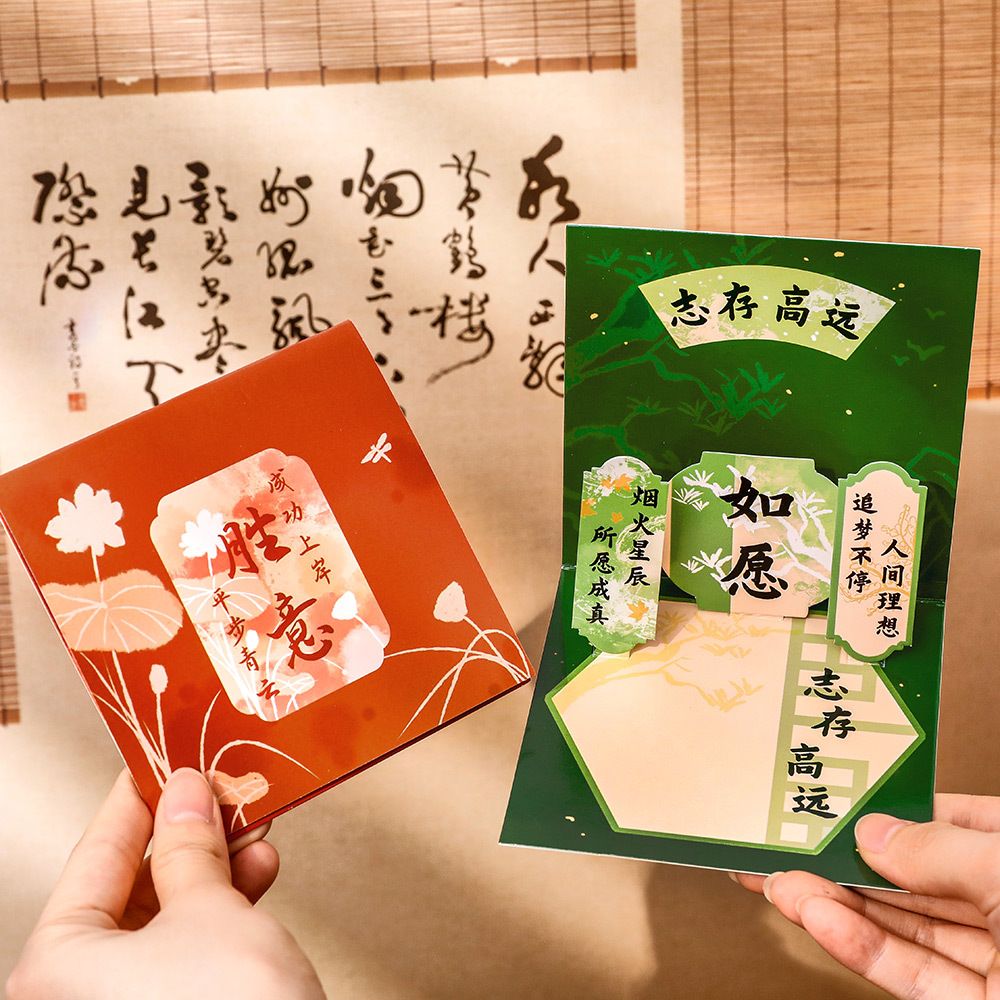 故人西辞
黄鶴楼
烟花三月
州孤帆
影碧空尽
見長江天
際流
成功上岸
胜意
平步青云
志存高远
烟火星辰
所愿成真
如愿
追梦不停
人间理想
志存高远